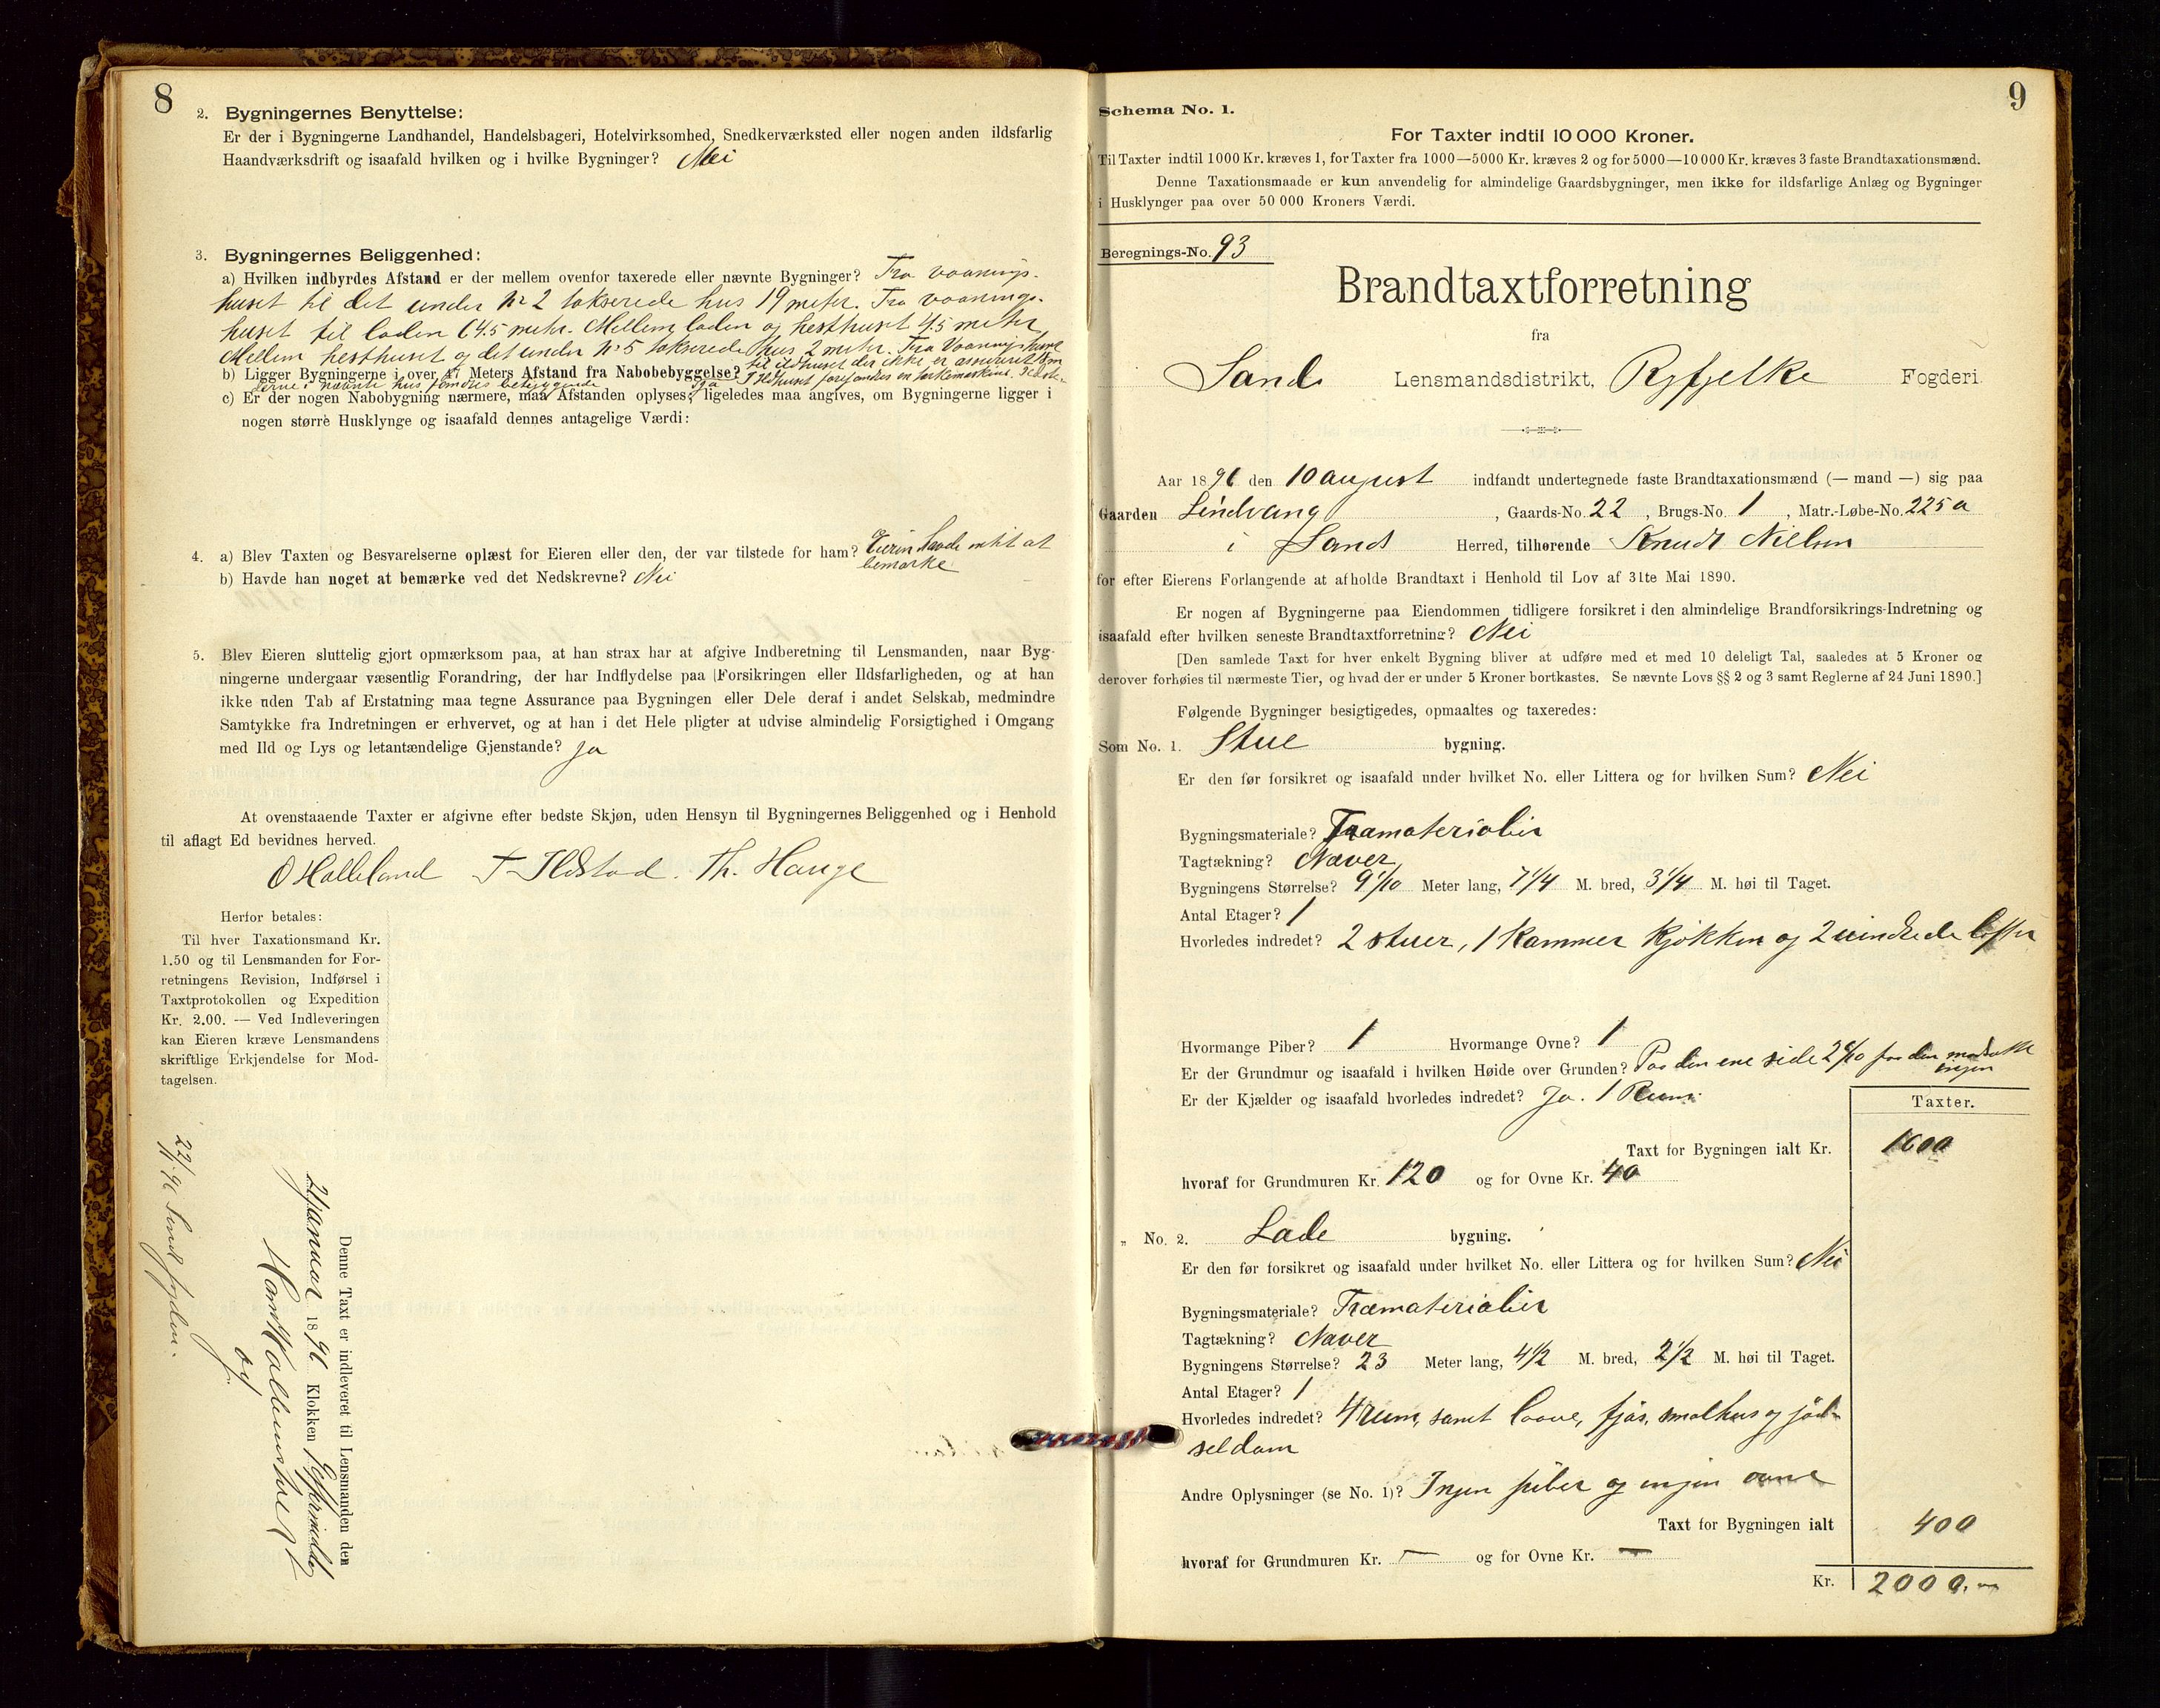 8
2. Bygningernes Benyttelse:
Er der i Bygningerne Landhandel, Handelsbageri, Hotelvirksomhed, Snedkerværksted eller nogen anden ildsfarlig
Haandværksdrift og isaafald hvilken og i hvilke Bygninger? Nei
3. Bygningernes Beliggenhed:
a) Hvilken indbyrdes Afstand er der mellem ovenfor taxerede eller nævnte Bygninger? Fra vaanings-
huset til det under No 2 takserede hus 19 meter. Fra vaanings-
huset til laden 64.5 meter. Mellem laden og hesthuset 4.5 meter
Mellem hesthuset og det under No 5 takserede hus 2 meter. Fra Vaaningshuset
til ildhuset der ikke er assureret
b) Ligger Bygningerne i over Meters Afstand fra Nabobebyggelse? Ja
c) Er der nogen Nabobygning nærmere, maa Afstanden oplyses; ligeledes maa angives, om Bygningerne ligger i
nogen større Husklynge og isaafald dennes antagelige Værdi:
4. a) Blev Taxten og Besvarelserne oplæst for Eieren eller den, der var tilstede for ham? Eieren havde intet at
bemærke
b) Havde han noget at bemærke ved det Nedskrevne? Nei
5. Blev Eieren sluttelig gjort opmærksom paa, at han strax har at afgive Indberetning til Lensmanden, naar Byg-
ningerne undergaar væsentlig Forandring, der har Indflydelse paa Forsikringen eller Ildsfarligheden, og at han
ikke uden Tab af Erstatning maa tegne Assurance paa Bygningen eller Dele deraf i andet Selskab, medmindre
Samtykke fra Indretningen er erhvervet, og at han i det Hele pligter at udvise almindelig Forsigtighed i Omgang
med Ild og Lys og letantændelige Gjenstande? Ja
At ovenstaaende Taxter er afgivne efter bedste Skjøn, uden Hensyn til Bygningernes Beliggenhed og i Henhold
til aflagt Ed bevidnes herved.
O Halleland T Ilstad. Th. Hauge
Herfor betales:
Til hver Taxationsmand Kr.
1.50 og til Lensmanden for For-
retningens Revision, Indførsel i
Taxtprotokollen og Expedition
Kr. 2.00. — Ved Indleveringen
kan Eieren kræve Lensmandens
skriftlige Erkjendelse for Mod-
tagelsen.
Denne Taxt er indleveret til Lensmanden den
2 Januar 1896 Klokken Eftermiddag
22/1 96 Sendt fogden.
9
Schema No. 1.
For Taxter indtil 10 000 Kroner.
Til Taxter indtil 1000 Kr. kræves 1, for Taxter fra 1000—5000 Kr. kræves 2 og for 5000—10 000 Kr. kræves 3 faste Brandtaxationsmænd.
Denne Taxationsmaade er kun anvendelig for almindelige Gaardsbygninger, men ikke for ildsfarlige Anlæg og Bygninger
i Husklynger paa over 50 000 Kroners Værdi.
Beregnings-No. 93
Brandtaxtforretning
fra
Sand Lensmandsdistrikt, Ryfylke Fogderi.
Aar 1896 den 10 august indfandt undertegnede faste Brandtaxationsmænd (— mand —) sig paa
Gaarden Lindvang, Gaards-No. 22, Brugs-No. 1, Matr.-Løbe-No. 225a
i Sand Herred, tilhørende Knudt Nielsen
for efter Eierens Forlangende at afholde Brandtaxt i Henhold til Lov af 31te Mai 1890.
Er nogen af Bygningerne paa Eiendommen tidligere forsikret i den almindelige Brandforsikrings-Indretning og
isaafald efter hvilken seneste Brandtaxtforretning? Nei
[Den samlede Taxt for hver enkelt Bygning bliver at udføre med et med 10 deleligt Tal, saaledes at 5 Kroner og
derover forhøies til nærmeste Tier, og hvad der er under 5 Kroner bortkastes. Se nævnte Lovs §§ 2 og 3 samt Reglerne af 24 Juni 1890.]
Følgende Bygninger besigtigedes, opmaaltes og taxeredes:
Som No. 1. Stue bygning.
Er den før forsikret og isaafald under hvilket No. eller Littera og for hvilken Sum? Nei
Bygningsmateriale? Træmaterialier
Tagtækning? Næver
Bygningens Størrelse? 9 1/10 Meter lang, 7 1/4 M. bred, 3 1/4 M. høi til Taget.
Antal Etager? 1
Hvorledes indredet? 2 stuer, 1 Kammer Kjøkken og 2 uindrede lofter
Hvormange Piber? 1 Hvormange Ovne? 1
Er der Grundmur og isaafald i hvilken Høide over Grunden? Paa den ene side paa den modsatte
ingen
Er der Kjælder og isaafald hvorledes indredet? Ja. 1 Rum.
Taxter.
Taxt for Bygningen ialt Kr. 1600
hvoraf for Grundmuren Kr. 120 og for Ovne Kr. 40
„ No. 2. Lade bygning.
Er den før forsikret og isaafald under hvilket No. eller Littera og for hvilken Sum? Nei
Bygningsmateriale? Træmaterialier
Tagtækning? Næver
Bygningens Størrelse? 23 Meter lang, 4 1/2 M. bred, 2 1/2 M. høi til Taget.
Antal Etager? 1
Hvorledes indredet? 4 rum, samt laave, fjøs, smalhus og jød-
seldam
Andre Oplysninger (se No. 1)? Ingen piber og ingen ovne
Taxt for Bygningen ialt 400
hvoraf for Grundmuren Kr. — og for Ovne Kr. —
Kr. 2000.—